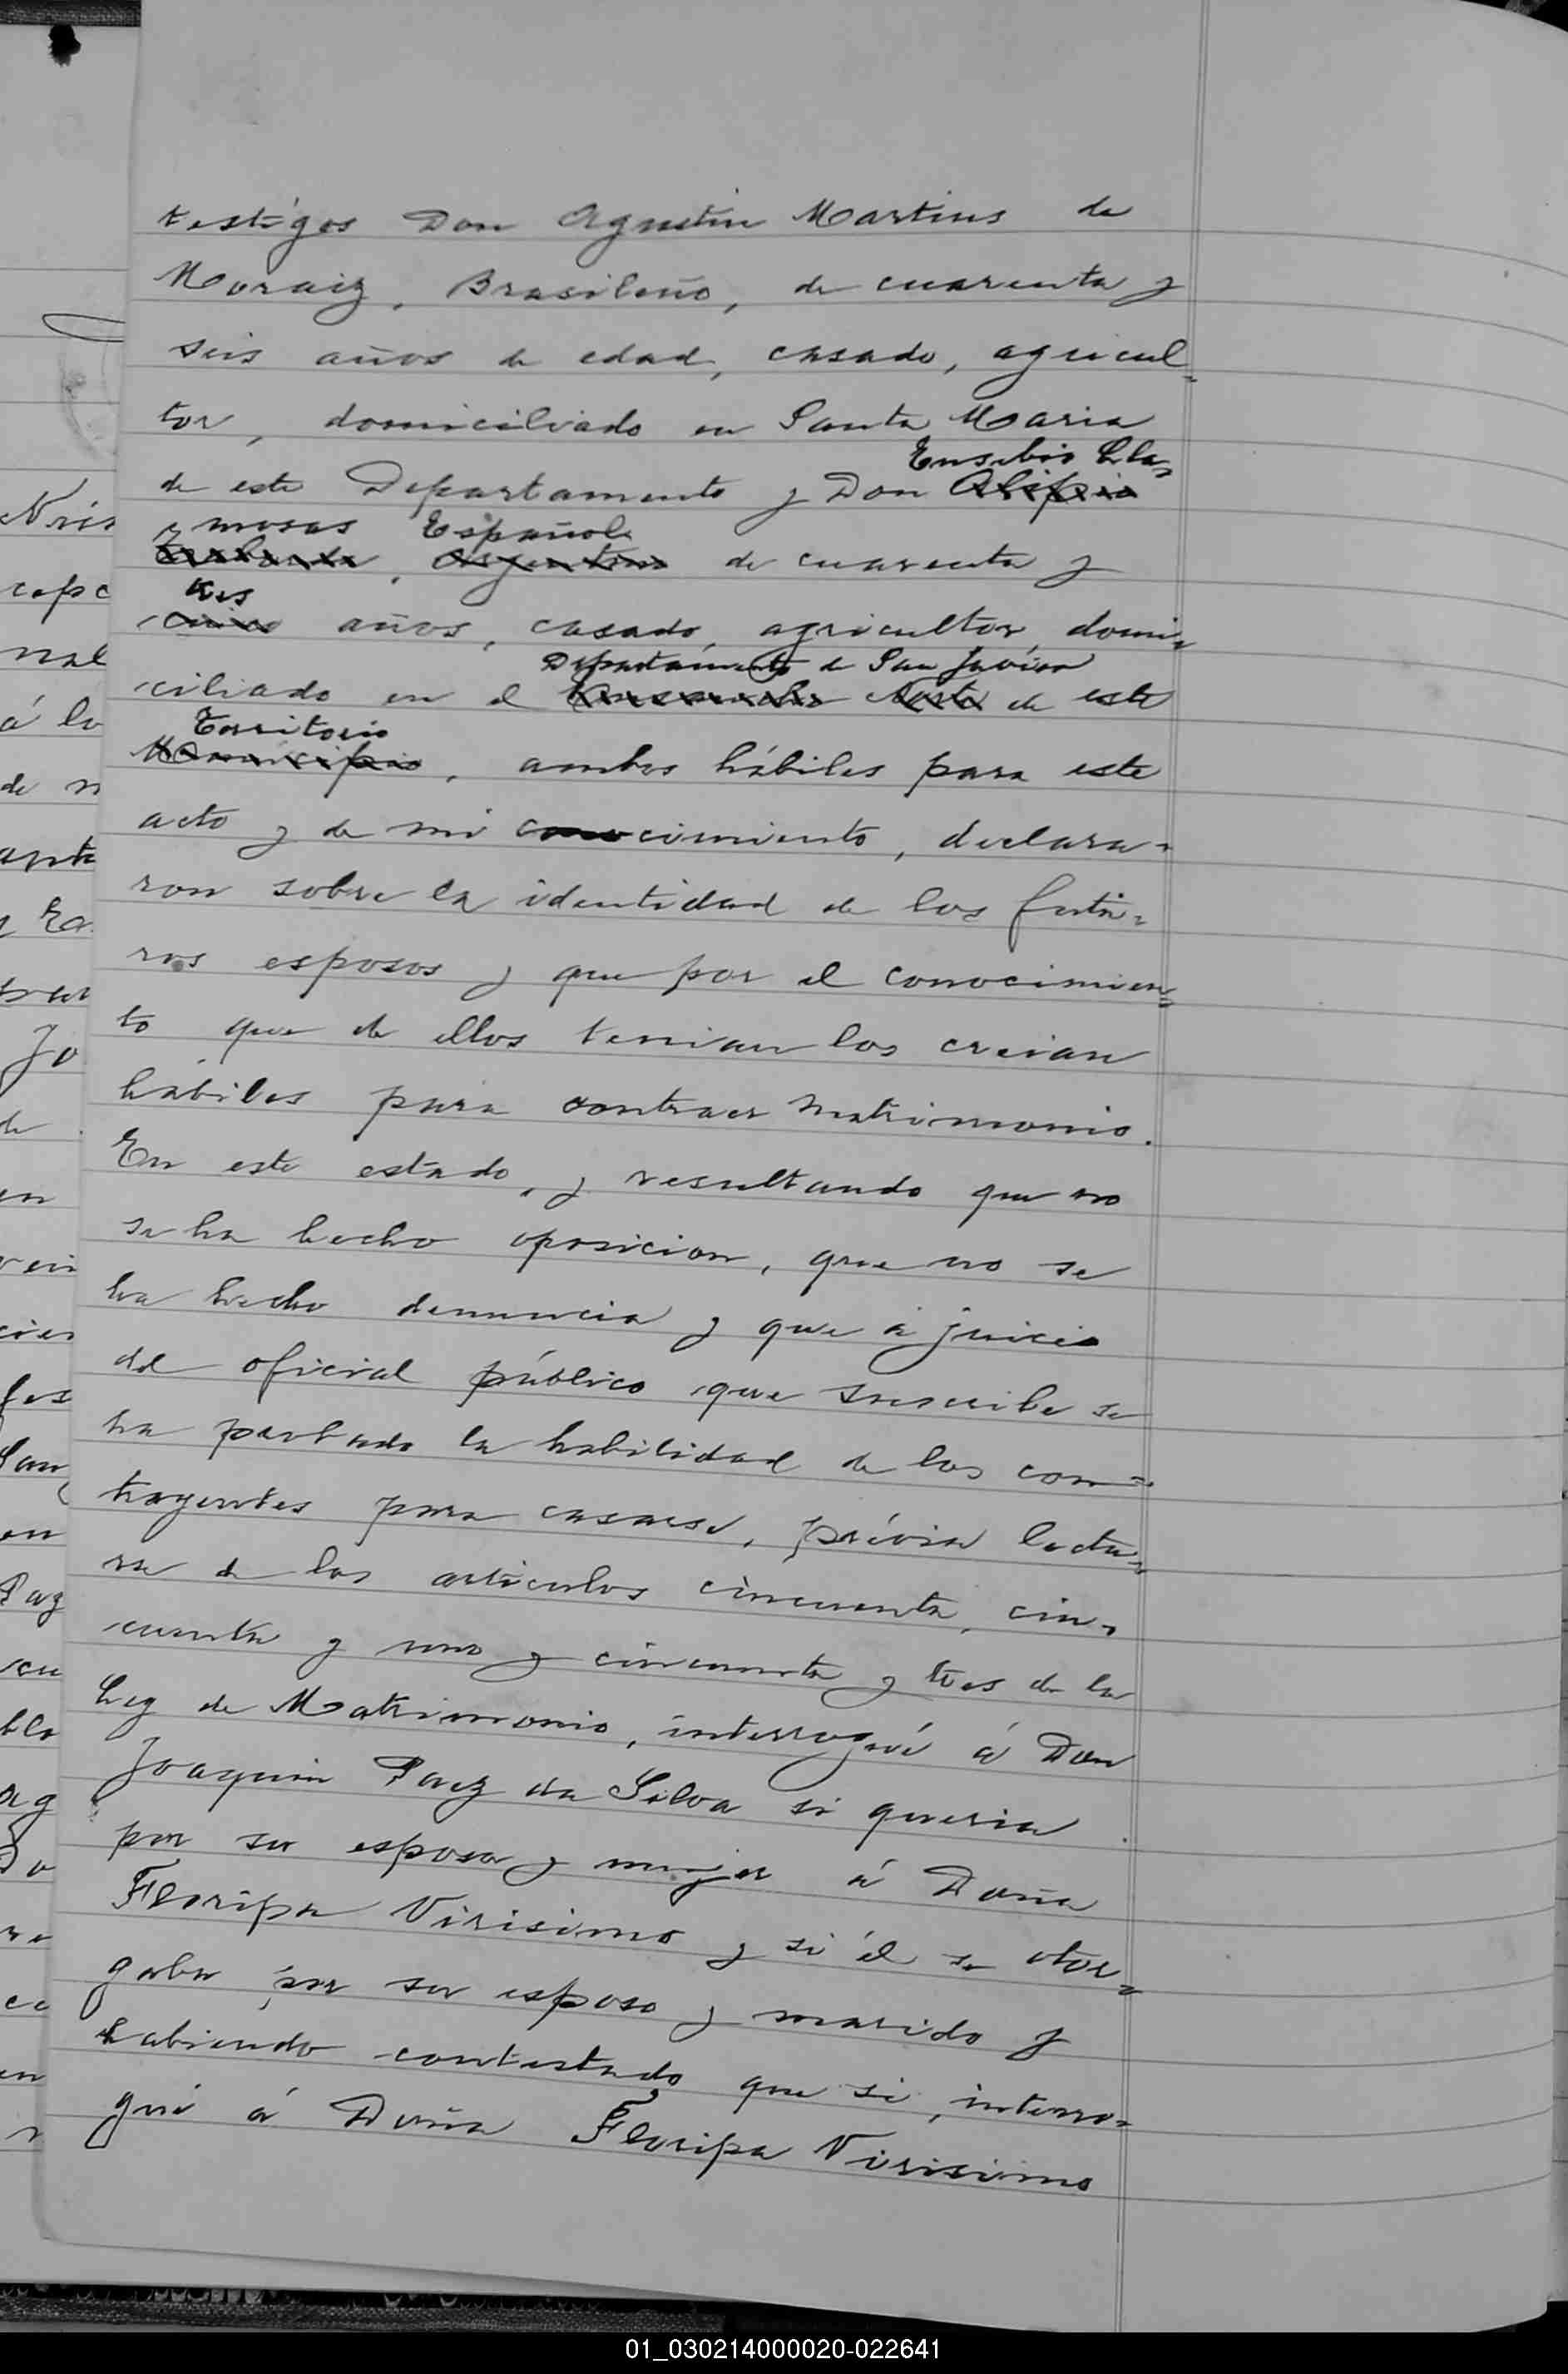 testigos Don Agustin Martins de
Moraiz, Brasileño, de cuarenta y
seis años de edad, casado, agricul=
tor, domiciliado en Santa Maria
Eusebio Lla=
de este Departamento y Don Alipio
mosas Español
Argentino de cuarenta y
tres
cinco años, casado, agricultor, domi=
Departamento de San Javier
ciliado en el Norte de este
Territorio
Municipio, ambos hábiles para este
acto y de mi conocimiento, declara=
ron sobre la identidad de los futu=
ros esposos y que por el conocimien=
to que de ellos tenian los creian
hábiles para contraer matrimonio.
En este estado, y resultando que no
se ha hecho oposicion, que no se
ha hecho denuncia y que á juicio
del oficial público que suscribe se
ha probado la habilidad de los con=
trayentes para casarse, prévia lectu=
ra de los articulos cincuenta, cin=
cuenta y uno y cincuenta y tres de la
Ley de Matrimonio, interrogué á Don
Joaquin Paez da Silva si queria
por su esposa y mujer á Doña
Floripa Virisimo y si él se otor=
gaba por su esposo y marido y
habiendo contestado que si, interro=
gué á Doña Floripa Virisimo
01_030214000020-022641